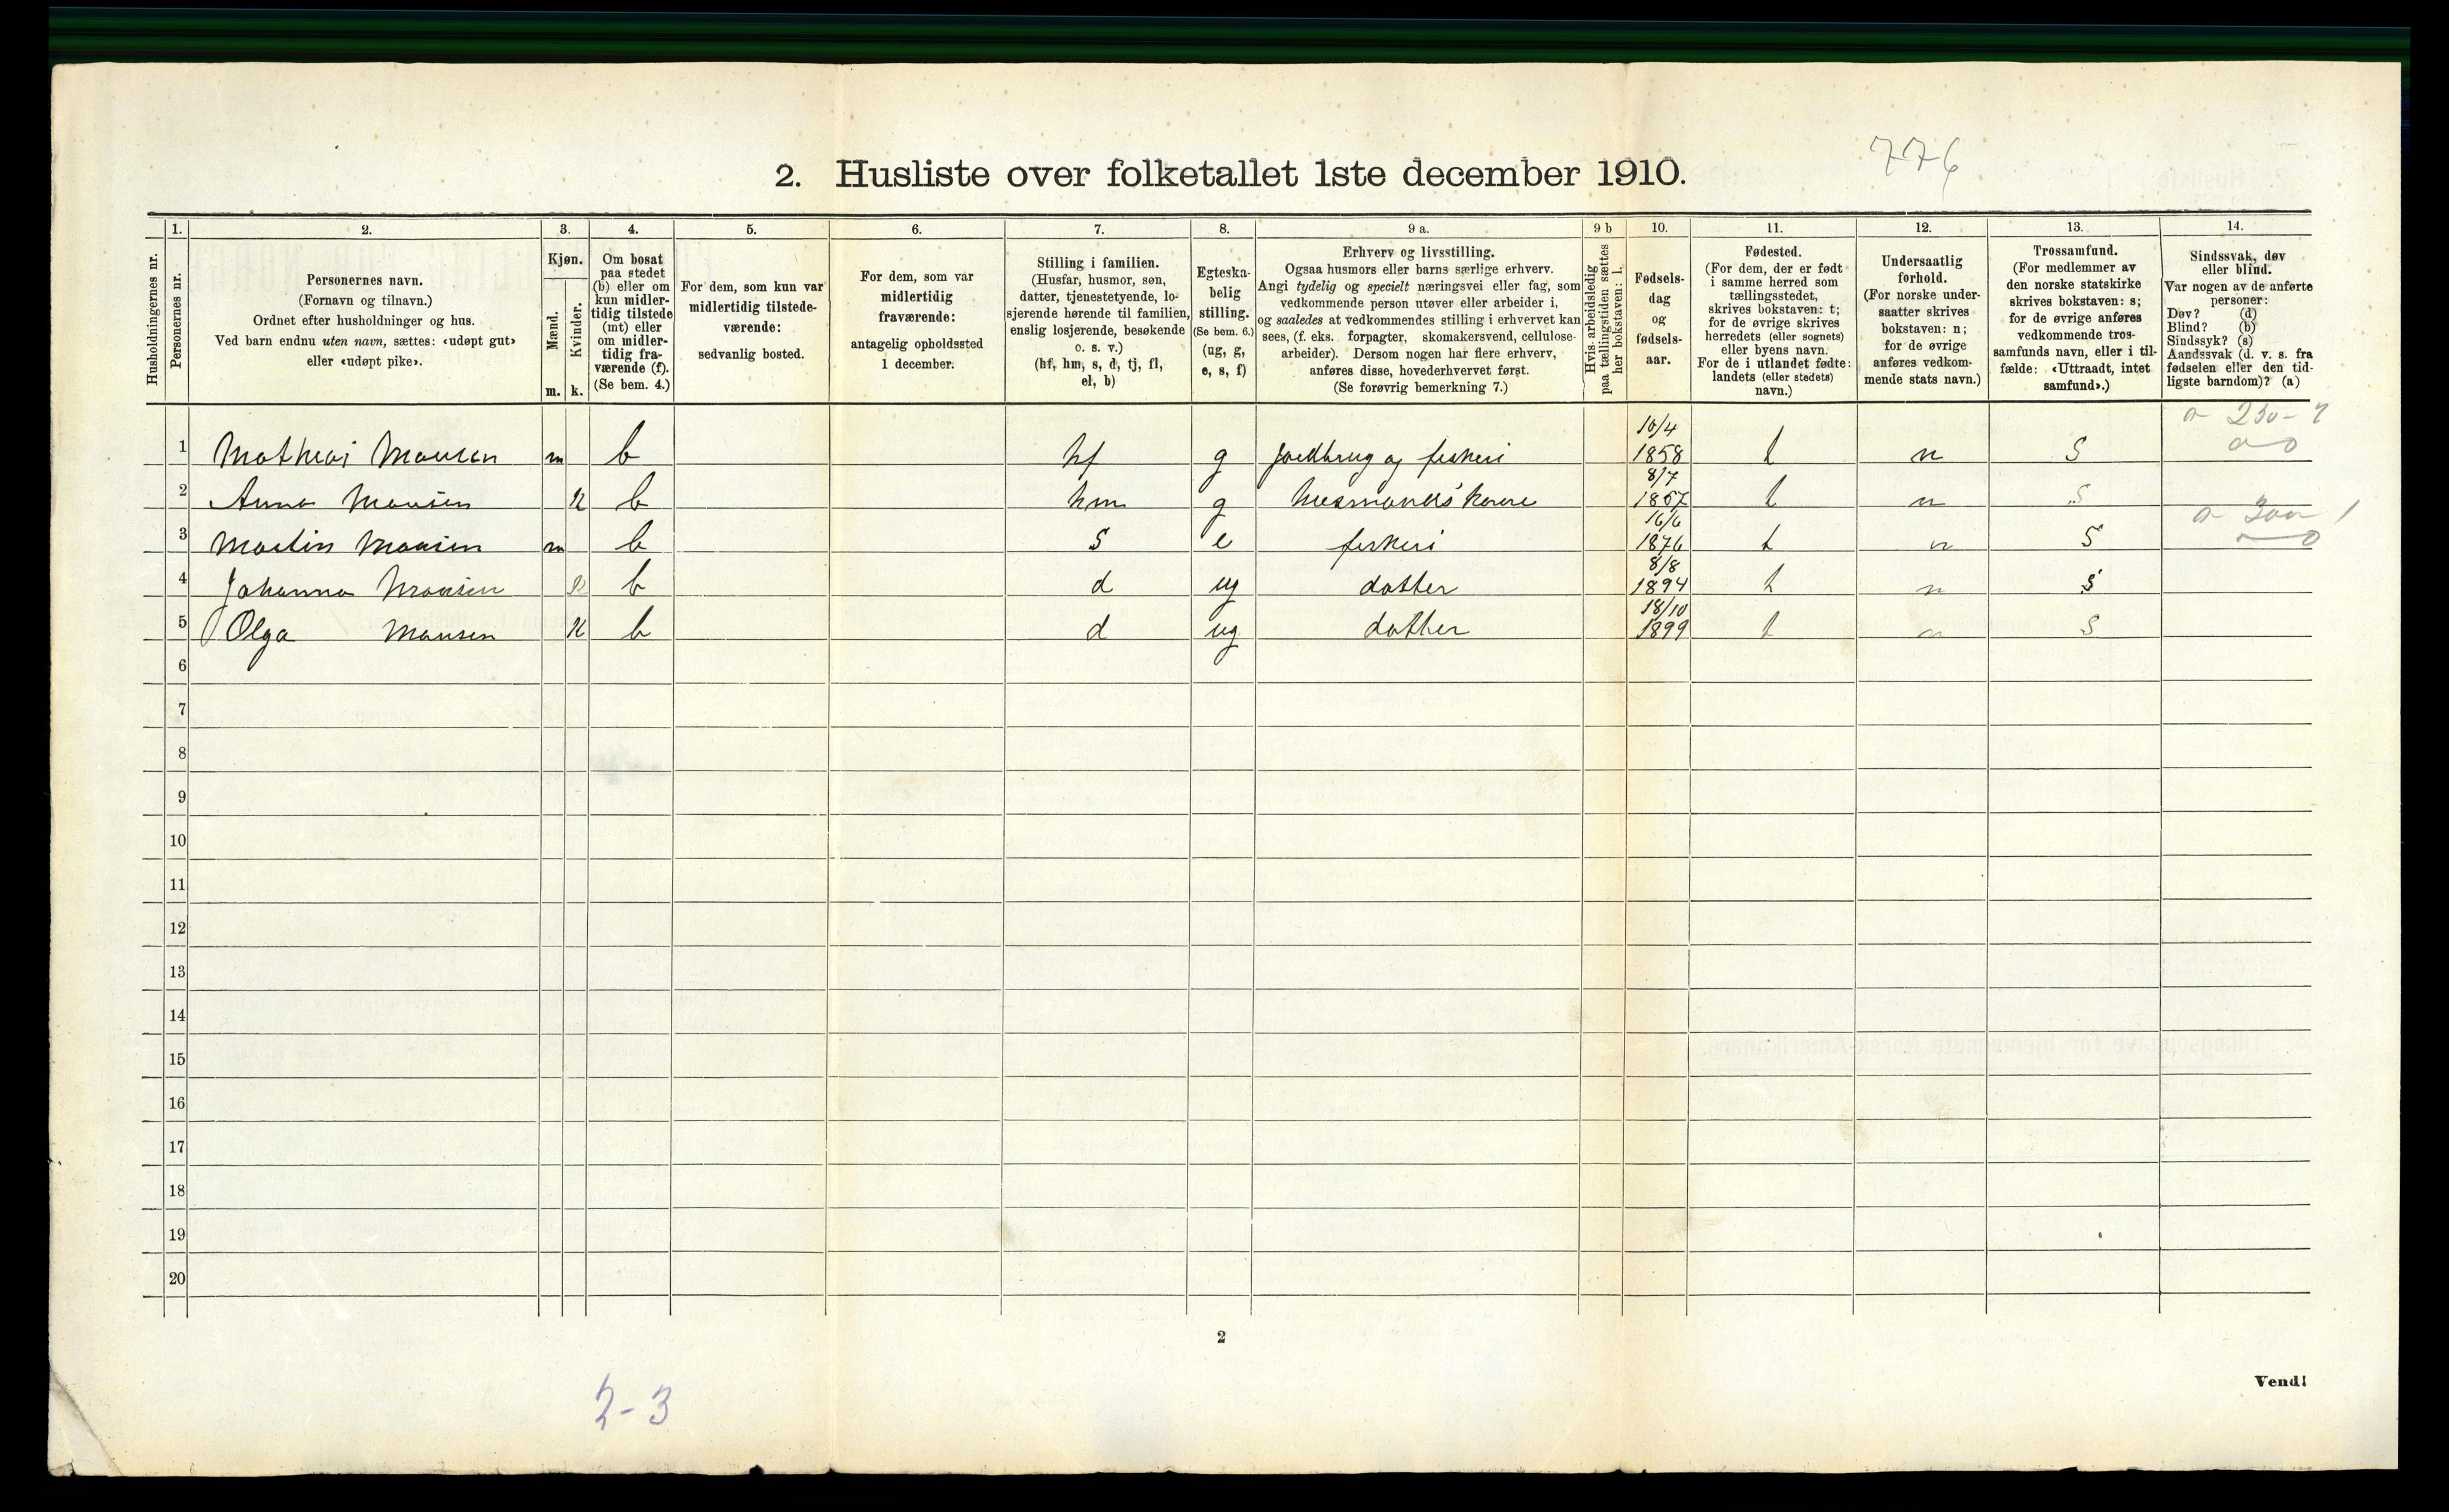 776
2. Husliste over folketallet 1ste december 1910.
Husholdningernes nr.
1.
Personernes nr.
2.
Personernes navn.
(Fornavn og tilnavn.)
Ordnet efter husholdninger og hus.
Ved barn endnu uten navn, sættes: «udøpt gut»
eller «udøpt pike».
3.
Kjøn.
Mænd.
m.
Kvinder.
k.
4.
Om bosat
paa stedet
(b) eller om
kun midler-
tidig tilstede
(mt) eller
om midler-
tidig fra-
værende (f).
(Se bem. 4.)
5.
For dem, som kun var
midlertidig tilstede-
værende:
sedvanlig bosted.
6.
For dem, som var
midlertidig
fraværende:
antagelig opholdssted
1 december.
7.
Stilling i familien.
(Husfar, husmor, søn,
datter, tjenestetyende, lo-
sjerende hørende til familien,
enslig losjerende, besøkende
o. s. v.)
(hf, hm, s, d, tj, fl,
el, b)
8.
Egteska-
belig
stilling.
(Se bem. 6.)
(ug, g,
e, s, f)
9 a.
Erhverv og livsstilling.
Ogsaa husmors eller barns særlige erhverv.
Angi tydelig og specielt næringsvei eller fag, som
vedkommende person utøver eller arbeider i,
og saaledes at vedkommendes stilling i erhvervet kan
sees, (f. eks. forpagter, skomakersvend, cellulose-
arbeider). Dersom nogen har flere erhverv,
anføres disse, hovederhvervet først.
(Se forøvrig bemerkning 7.)
9 b
Hvis arbeidsledig
paa tællingstiden sættes
her bokstaven: l.
10.
Fødsels-
dag
og
fødsels-
aar.
11.
Fødested.
(For dem, der er født
i samme herred som
tællingsstedet,
skrives bokstaven: t;
for de øvrige skrives
herredets (eller sognets)
eller byens navn.
For de i utlandet fødte:
landets (eller stedets)
navn.)
12.
Undersaatlig
forhold.
(For norske under-
saatter skrives
bokstaven: n;
for de øvrige
anføres vedkom-
mende stats navn.)
13.
Trossamfund.
(For medlemmer av
den norske statskirke
skrives bokstaven: s;
for de øvrige anføres
vedkommende tros-
samfunds navn, eller i til-
fælde: «Uttraadt, intet
samfund».)
14.
Sindssvak, døv
eller blind.
Var nogen av de anførte
personer:
Døv? (d)
Blind? (b)
Sindssyk? (s)
Aandssvak (d. v. s. fra
fødselen eller den tid-
ligste barndom)? (a)
1 Mathias Monsen m b hf g jordbrug og fiskeri 10/4 1858 t n S
2 Anna Monsen k b hm g husmands kone 8/7 1857 t n S
3 Martin Monsen m b S e fiskeri 16/6 1876 t n S
4 Johanna Monsen k b d ug datter 8/8 1894 t n S
5 Olga Monsen k b d ug datter 18/10 1899 t n S
6
7
8
9
10
11
12
13
14
15
16
17
18
19
20
2
Vend!
2-3